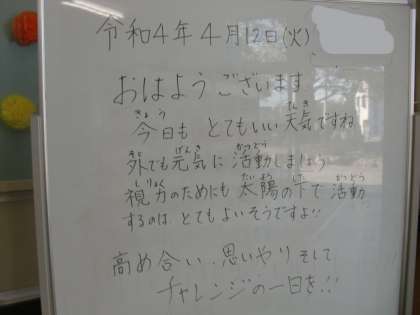 令和4年4月12日(火)
おはようございます
今日も とてもいい天気ですね
外でも元気に活動しましょう
視力のためにも太陽の下で活動
するのは とてもよいそうですよ!!
高め合い、思いやり そして
チャレンジの一日を!!